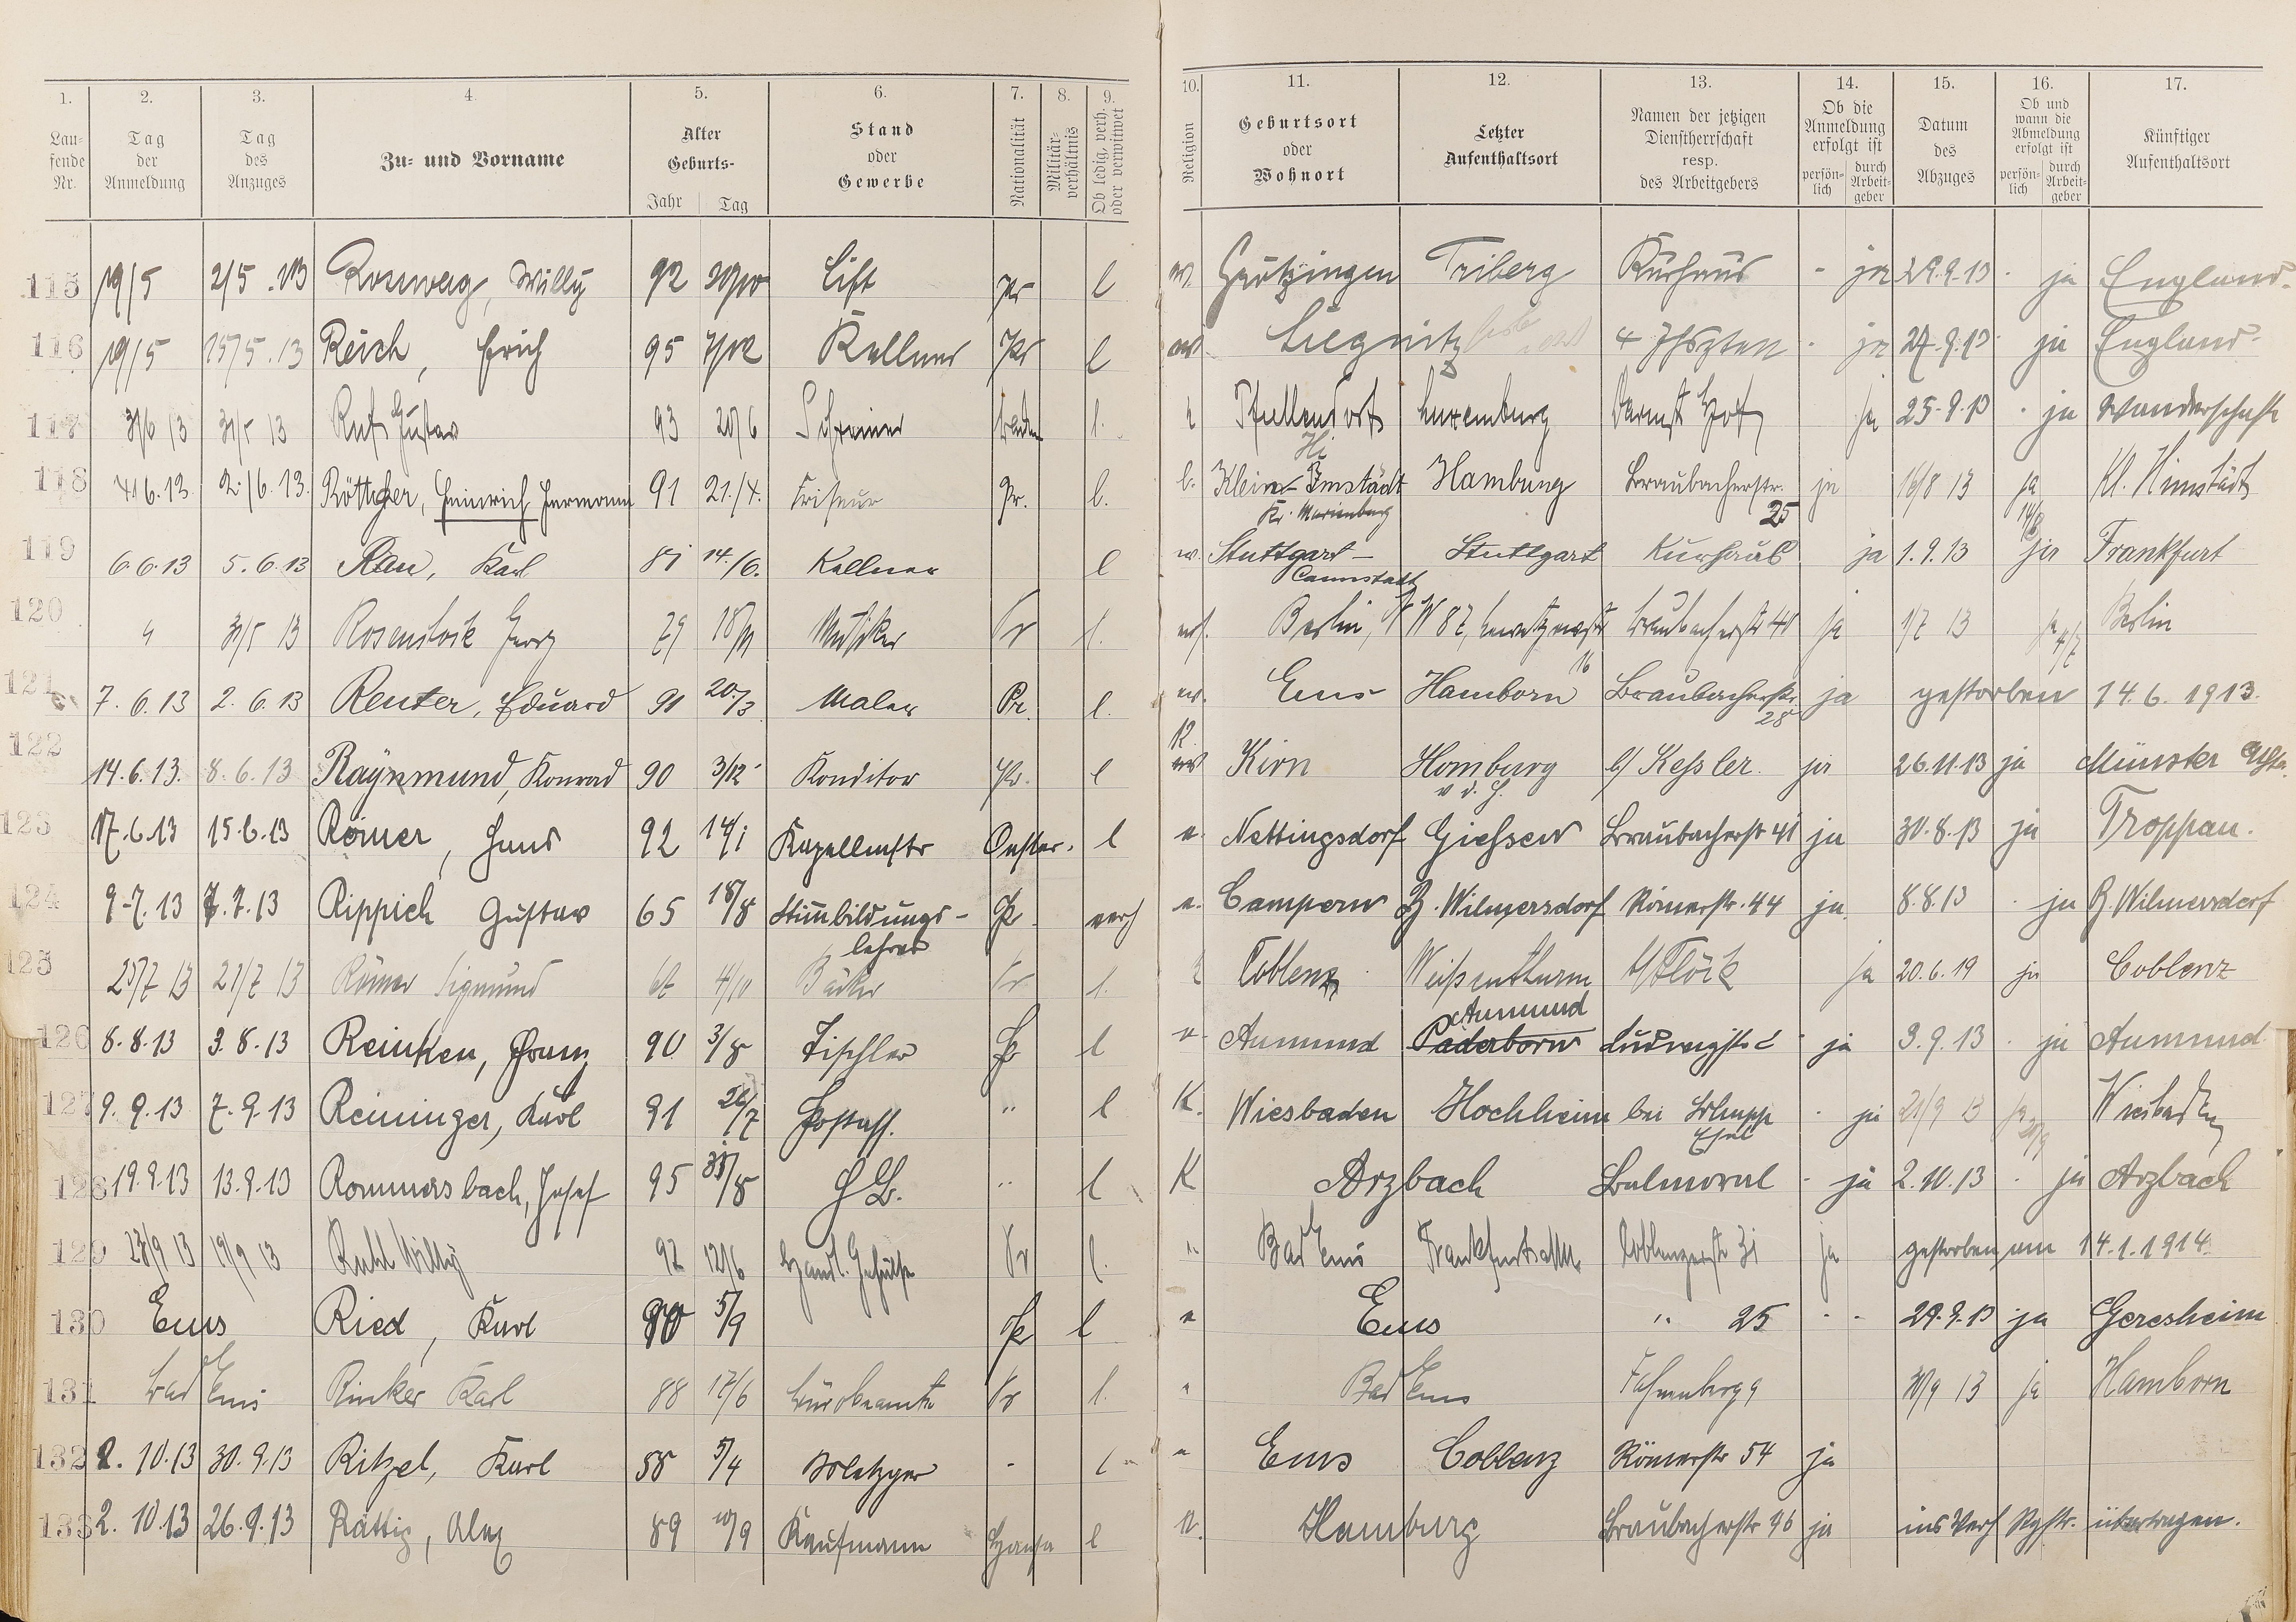 1. 2. 3. 4. 5. 6. 7. 8. 9. 10. 11. 12. 13. 14. 15. 16. 17.
Laufende Nr. Tag der Anmeldung Tag des Anzuges Zu- und Vorname Alter Geburts- Jahr Tag Stand oder Gewerbe Nationalität Militärverhältnis Ob ledig, verh. oder verwitwet Religion Geburtsort oder Wohnort Letzter Aufenthaltsort Namen der jetzigen Dienstherrschaft resp. des Arbeitgebers Ob die Anmeldung erfolgt ist persönlich durch Arbeitgeber Datum des Abzuges Ob und wann die Abmeldung erfolgt ist persönlich durch Arbeitgeber Künftiger Aufenthaltsort
115 19/5 2/5.13 Rosswag, Willy 92 Lift Pr l Triberg Kurhaus - ja 29.9.13 - ja England
116 19/5 15/5.13 Reich, Erich 95 Kellner Pr l Liegnitz 4 Jhszten - ja 27.9.13 ja England
117 3/6 13 31/5 13 Ruf Gustav 93 20/6 Schreiner Baden l. Pfullendorf Luxemburg Darmst Hof ja 25.9.13 - ja Wanderschaft
118 4/6.13 2./6.13. Röttcher, Heinrich Hermann 91 21./4. Friseur Pr. l. Klein-Imstädt Hi Kr. Marienburg Hamburg Braubacherstr. 25 ja 16/8 13 ja Kl. Himstädt
119 6.6.13 5.6.13 Rau, Karl 81 14./6. Kellner l Stuttgart-Cannstadt Stuttgart Kurhaus ja 1.9.13 ja Frankfurt
120 " 31/5 13 Rosenstock Georg 79 Musiker Pr l. Berlin, W 87, Braubacherstr 41 ja 1/7 13 ja 4/7 Berlin
121 7.6.13 2.6.13 Reuter, Eduard 91 20./3 Maler Pr. l. ev. Ems Hamborn Braubacherstr. 28 ja gestorben 14.6.1913.
122 14.6.13. 8.6.13 Raymund, Konrad 90 3/12 Konditor Pr. l Kirn Homburg v. d. H. b/ Kessler. ja 26.11.13 ja Münster
123 17.6.13 15.6.13 Römer, Hans 92 14/1 Kapellmstr Oester. l " Nettingsdorf Giessen Braubacherstr 41 ja 30.8.13 ja Troppau.
124 9.7.13 7.7.13 Rippich Gustav 65 18/8 Stimmbildungs-lehrer Pr. verh ". Campern B. Wilmersdorf Römerstr. 44 ja 8.8.13 - ja B. Wilmersdorf
125 25/7 13 21/7 13 Römer Sigmund 4/11 Bäcker Pr l. Coblenz Weissenthurm b/Flöck ja 20.6.19 ja Coblenz
126 8.8.13 3.8.13 Reinken, Franz 90 3/8 Tischler Pr l " Aumund Paderborn Aumund Ludwigstr ja 3.9.13 - ja Aumund
127 9.9.13 7.9.13 Reininger, Karl 91 26/7 Postass. " l K. Wiesbaden Hochheim bei Schupp - ja 21/9 13 ja Wiesbaden
128 19.9.13 13.9.13 Rommersbach, Josef 95 31/8 " l K Arzbach Balmoral - ja 2.10.13 - ja Arzbach
129 23/9 13 19/9 13 Ruhl Willy 92 12/6 Handl. Gehülfe Pr l. " Bad Ems Frankfurt a/M. Coblenzerstr 31 ja gestorben am 14.1.1914.
130 Ems Ried, Karl 90 5/9 Pr l " Ems " 25 - - 29.9.13 ja Geresheim
131 Bad Ems Rinker Karl 88 17/6 Bürobeamte Pr l. " Bad Ems Fahnenberg 9 30/9 13 ja Hamborn
132 2.10.13 30.9.13 Ritzel, Karl 58 5/4 Metzger - l " Ems Coblenz Römerstr 54 ja
133 2.10.13 26.9.13 Rattig, Alex 89 10/9 Kaufmann Hansa l ". Hamburg Braubacherstr 96 ja ins Verh Rgstr. übertragen.